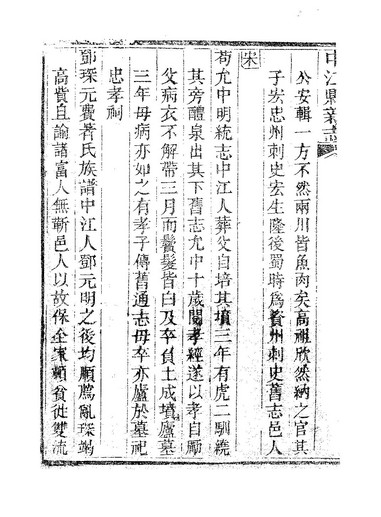 中江縣新志
公安輯一方不然兩川皆魚肉矣高祖欣然納之官其
子宏忠州刺史宏生隆後蜀時為資州刺史舊志邑人
宋
苟允中明統志中江人葬父自培其墳三年有虎二馴繞
其旁醴泉出其下舊志允中十歲閱孝經遂以孝自勵
父病衣不解帶三月而鬢髮皆白及卒負土成墳廬墓
三年母病亦如之有孝子傳舊通志母卒亦廬於墓祀
忠孝祠
鄧琛元費著氏族譜中江人鄧元明之後均順為亂琛竭
高貲且諭諸富人無靳邑人以故保全家頼貧徙雙流